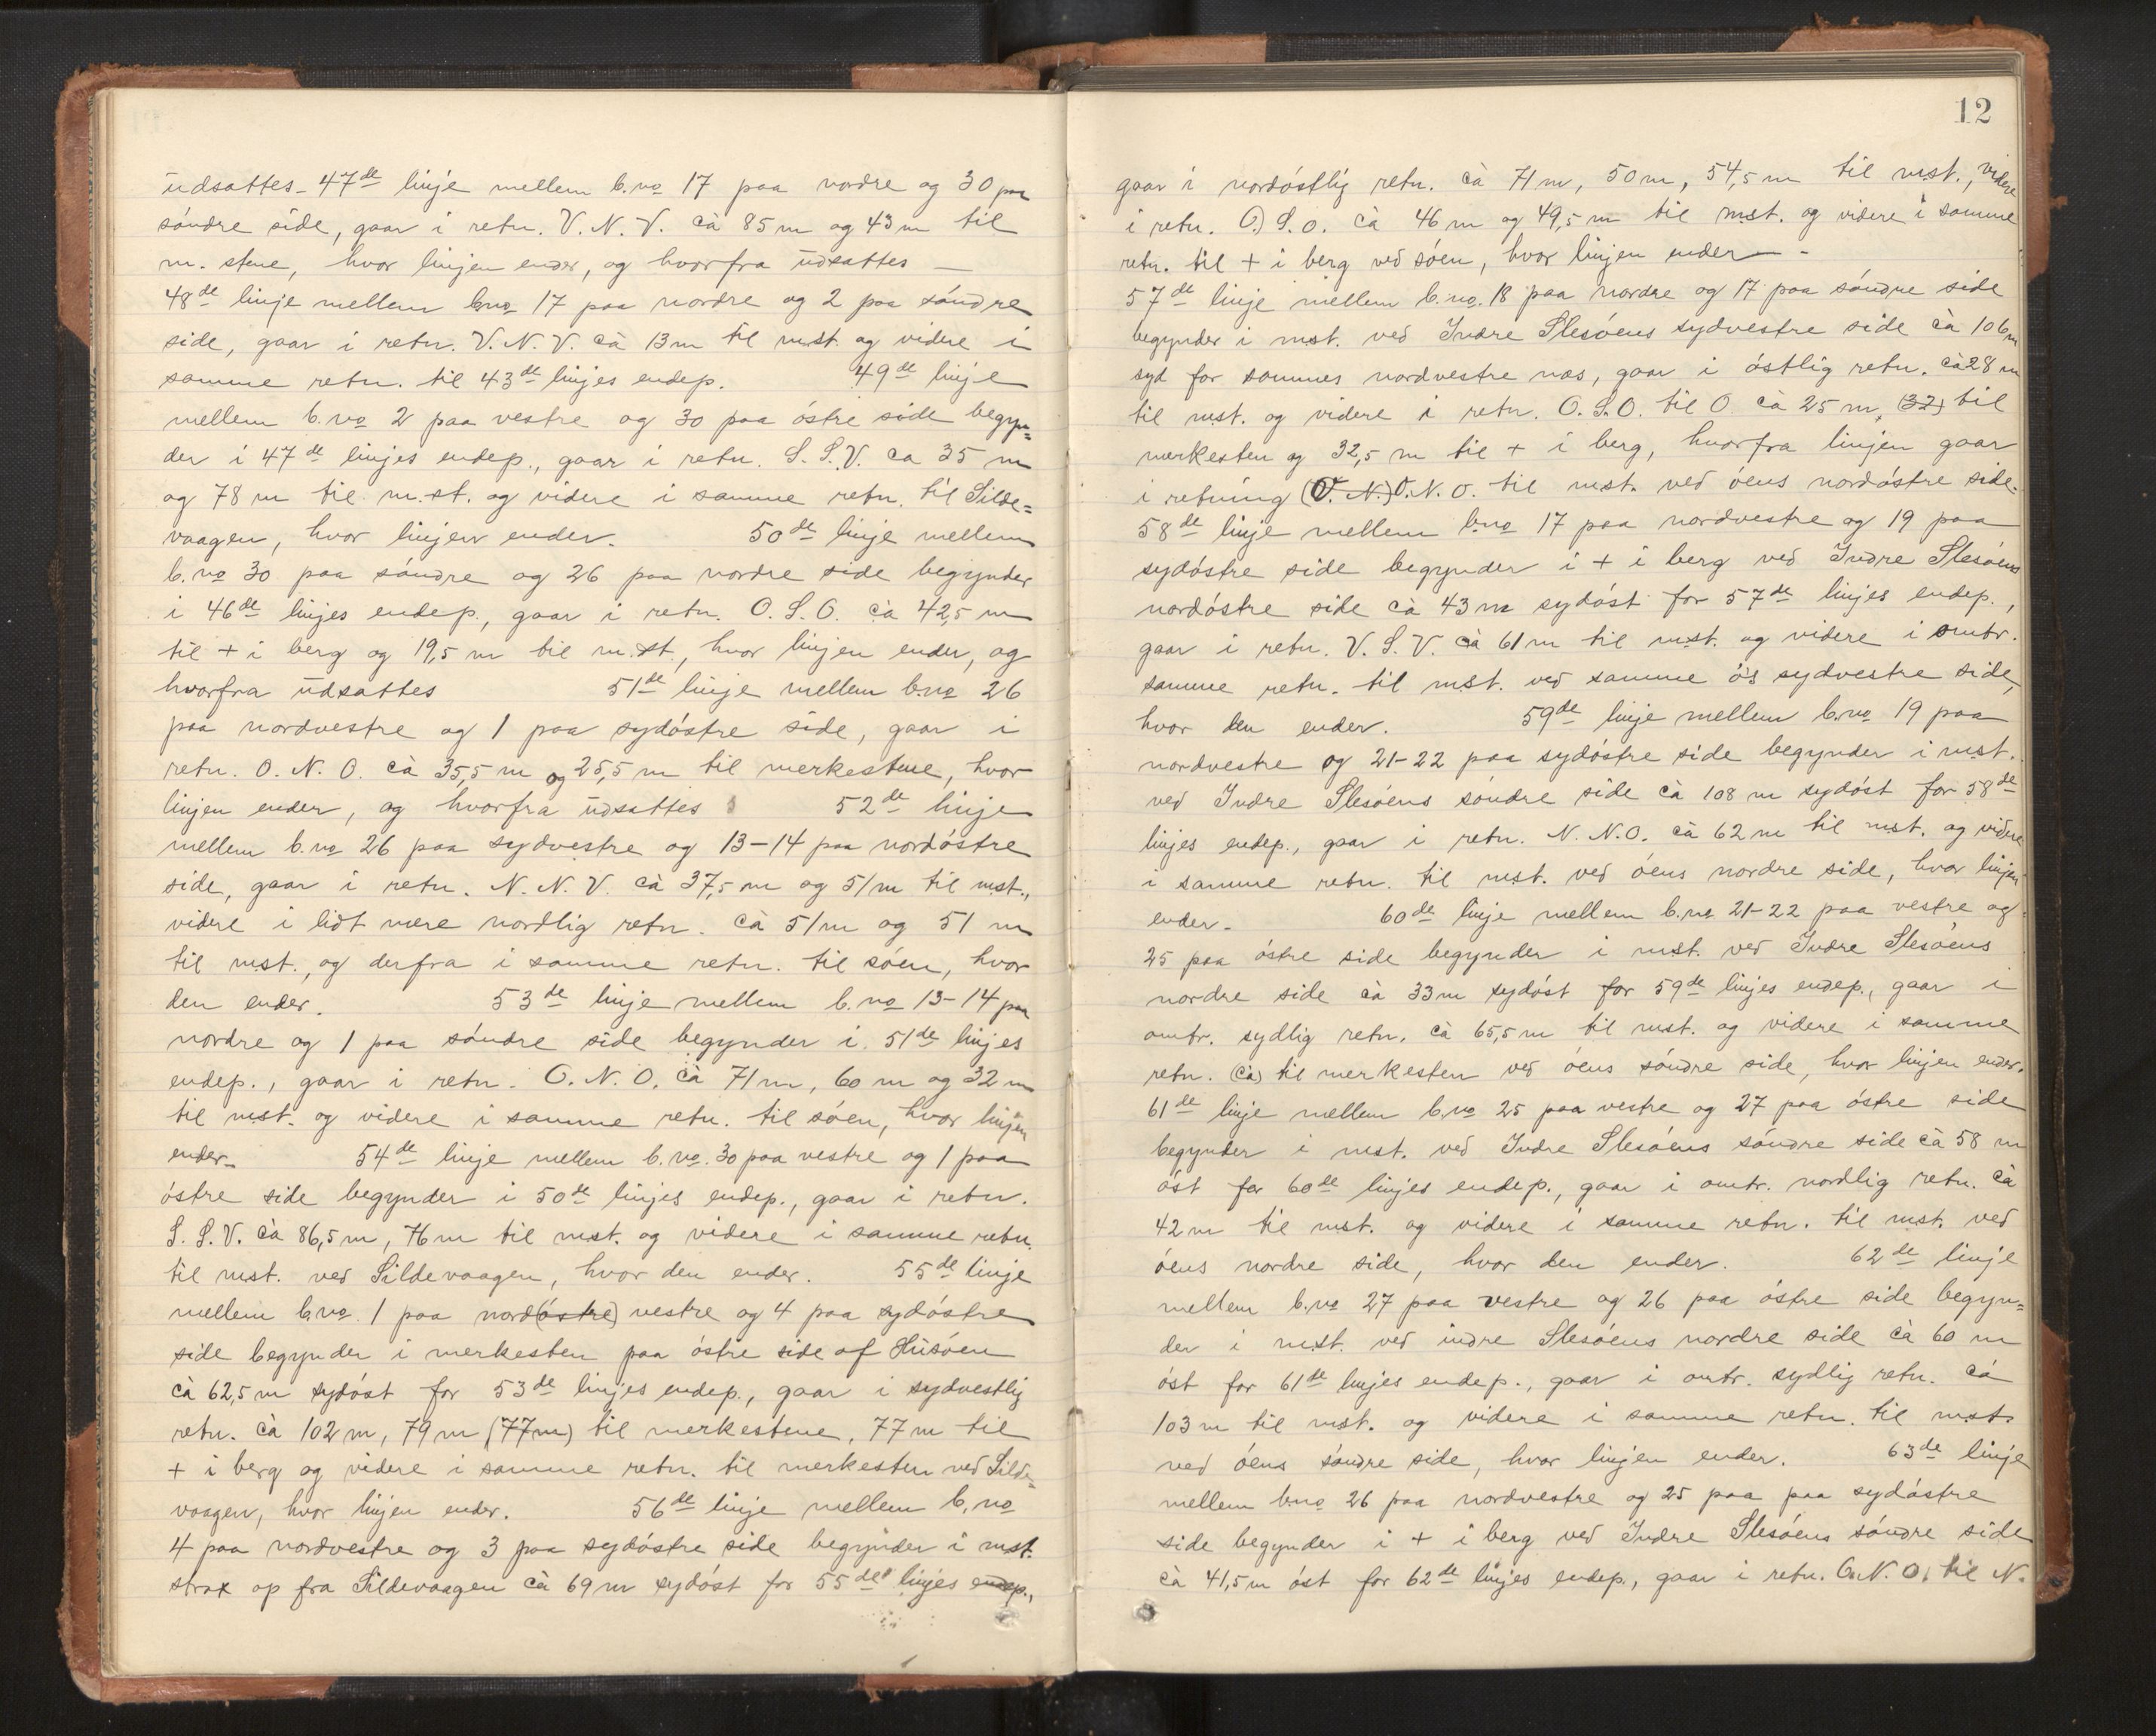 udsattes_ 47de linje mellem b.no 17 paa nordre og 30 paa
söndre side, gaar i retn. V.N.V. cà 85 m og 43 m til
m. stene, hvor linjen ender, og hvorfra udsattes _
48de linje mellem b.no 17 paa nordre og 2 paa söndre
side, gaar i retn. V.N.V. cà 13 m til m.st. og videre i
samme retn. til 43de linjes endep. 49de linje
mellem b.no 2 paa vestre og 30 paa östre side begyn=
der i 47de linjes endep., gaar i retn. S.S.V. ca 35 m
og 78 m til m.st. og videre i samme retn. til Silde=
vaagen, hvor linjen ender. 50de linje mellem
b.no 30 paa söndre og 26 paa nordre side begynder
i 46de linjes endep., gaar i retn. O.S.O. cà 42,5 m
til + i berg og 19,5 m til m.st., hvor linjen ender, og
hvorfra udsattes 51de linje mellem b.no 26
paa nordvestre og 1 paa sydöstre side, gaar i
retn. O.N.O. cà 35,5 m og 25,5 m til merkestene, hvor
linjen ender, og hvorfra udsattes 52de linje
mellem b.no 26 paa sydvestre og 13-14 paa nordöstre
side, gaar i retn. N.N.V. cà 37,5 m og 51 m til mst.,
videre i lidt mere nordlig retn. cà 51 m og 51 m
til mst., og derfra i samme retn. til söen, hvor
den ender. 53de linje mellem b.no 13-14 paa
nordre og 1 paa söndre side begynder i 51de linjes
endep., gaar i retn. O.N.O. cà 71 m, 60 m og 32 m
til mst. og videre i samme retn. til söen, hvor linjen
ender_ 54de linje mellem b.no. 30 paa vestre og 1 paa
östre side begynder i 50de linjes endep., gaar i retn.
S.S.V. cà 86,5 m, 76 m til mst. og videre i samme retn.
til mst. ved Sildevaagen, hvor den ender. 55de linje
mellem b.no 1 paa nord(östre) vestre og 4 paa sydöstre
side begynder i merkesten paa östre side af Husöen
cà 62,5 m sydöst for 53de linjes endep., gaar i sydvestlig
retn. cà 102 m, 79 m (77 m) til merkestene, 77 m til
+ i berg og videre i samme retn. til merkesten ved Silde=
vaagen, hvor linjen ender. 56de linje mellem b.no
4 paa nordvestre og 3 paa sydöstre side begynder i mst.
strax op fra Sildevaagen cà 69 m sydöst for 55de linjes endep.,
12
gaar i nordöstlig retn. cà 71 m, 50 m, 54,5 m til mst., videre
i retn. O.) S.O. cà 46 m og 49,5 m til mst. og videre i samme
retn. til + i berg ved söen, hvor linjen ender_ -
57de linje mellem b.no. 18 paa nordre og 17 paa söndre side
begynder i mst. ved Indre Slesöens sydvestre side cà 106 m
syd for sammes nordvestre nes, gaar i östlig retn. cà 28 m
til mst. og videre i retn. O.S.O. til O cà 25 m, (32) til
merkesten og 32,5 m til + i berg, hvorfra linjen gaar
i retning (O.N.) O.N.O. til mst. ved öens nordöstre side.
58de linje mellem b.no 17 paa nordvestre og 19 paa
sydöstre side begynder i + i berg ved Indre Slesöens
nordöstre side cà 43 m sydöst for 57de linjes endep.,
gaar i retn. V.S.V. cà 61 m til mst. og videre i omtr.
samme retn. til mst. ved samme ö's sydvestre side,
hvor den ender. 59de linje mellem b.no 19 paa
nordvestre og 21-22 paa sydöstre side begynder i mst.
ved Indre Slesöens söndre side cà 108 m sydöst for 58de
linjes endep., gaar i retn. N.N.O. cà 62 m til mst. og videre
i samme retn. til mst. ved öens nordre side, hvor linjen
ender_ 60de linje mellem b.no 21-22 paa vestre og
25 paa östre side begynder i mst. ved Indre Slesöens
nordre side cà 33 m sydöst for 59de linjes endep., gaar i
omtr. sydlig retn. cà 65,5 m til mst. og videre i samme
retn. (cà) til merkesten ved öens söndre side, hvor linjen ender.
61de linje mellem b.no 25 paa vestre og 27 paa östre side
begynder i mst. ved Indre Slesöens söndre side cà 58 m
öst for 60de linjes endep., gaar i omtr. nordlig retn. cà
42 m til mst. og videre i samme retn. til mst. ved
öens nordre side, hvor den ender. 62de linje
mellem b.no 27 paa vestre og 26 paa östre side begyn=
der i mst. ved indre Slesöens nordre side cà 60 m
öst for 61de linjes endep., gaar i omtr. sydlig retn. cà
103 m til mst. og videre i samme retn. til mst.
ved öens söndre side, hvor linjen ender. 63de linje
mellem b.no 26 paa nordvestre og 25 paa paa sydöstre
side begynder i + i berg ved Indre Slesöens söndre side
cà 41,5 m öst for 62de linjes endep., gaar i retn. O.N.O. til N.